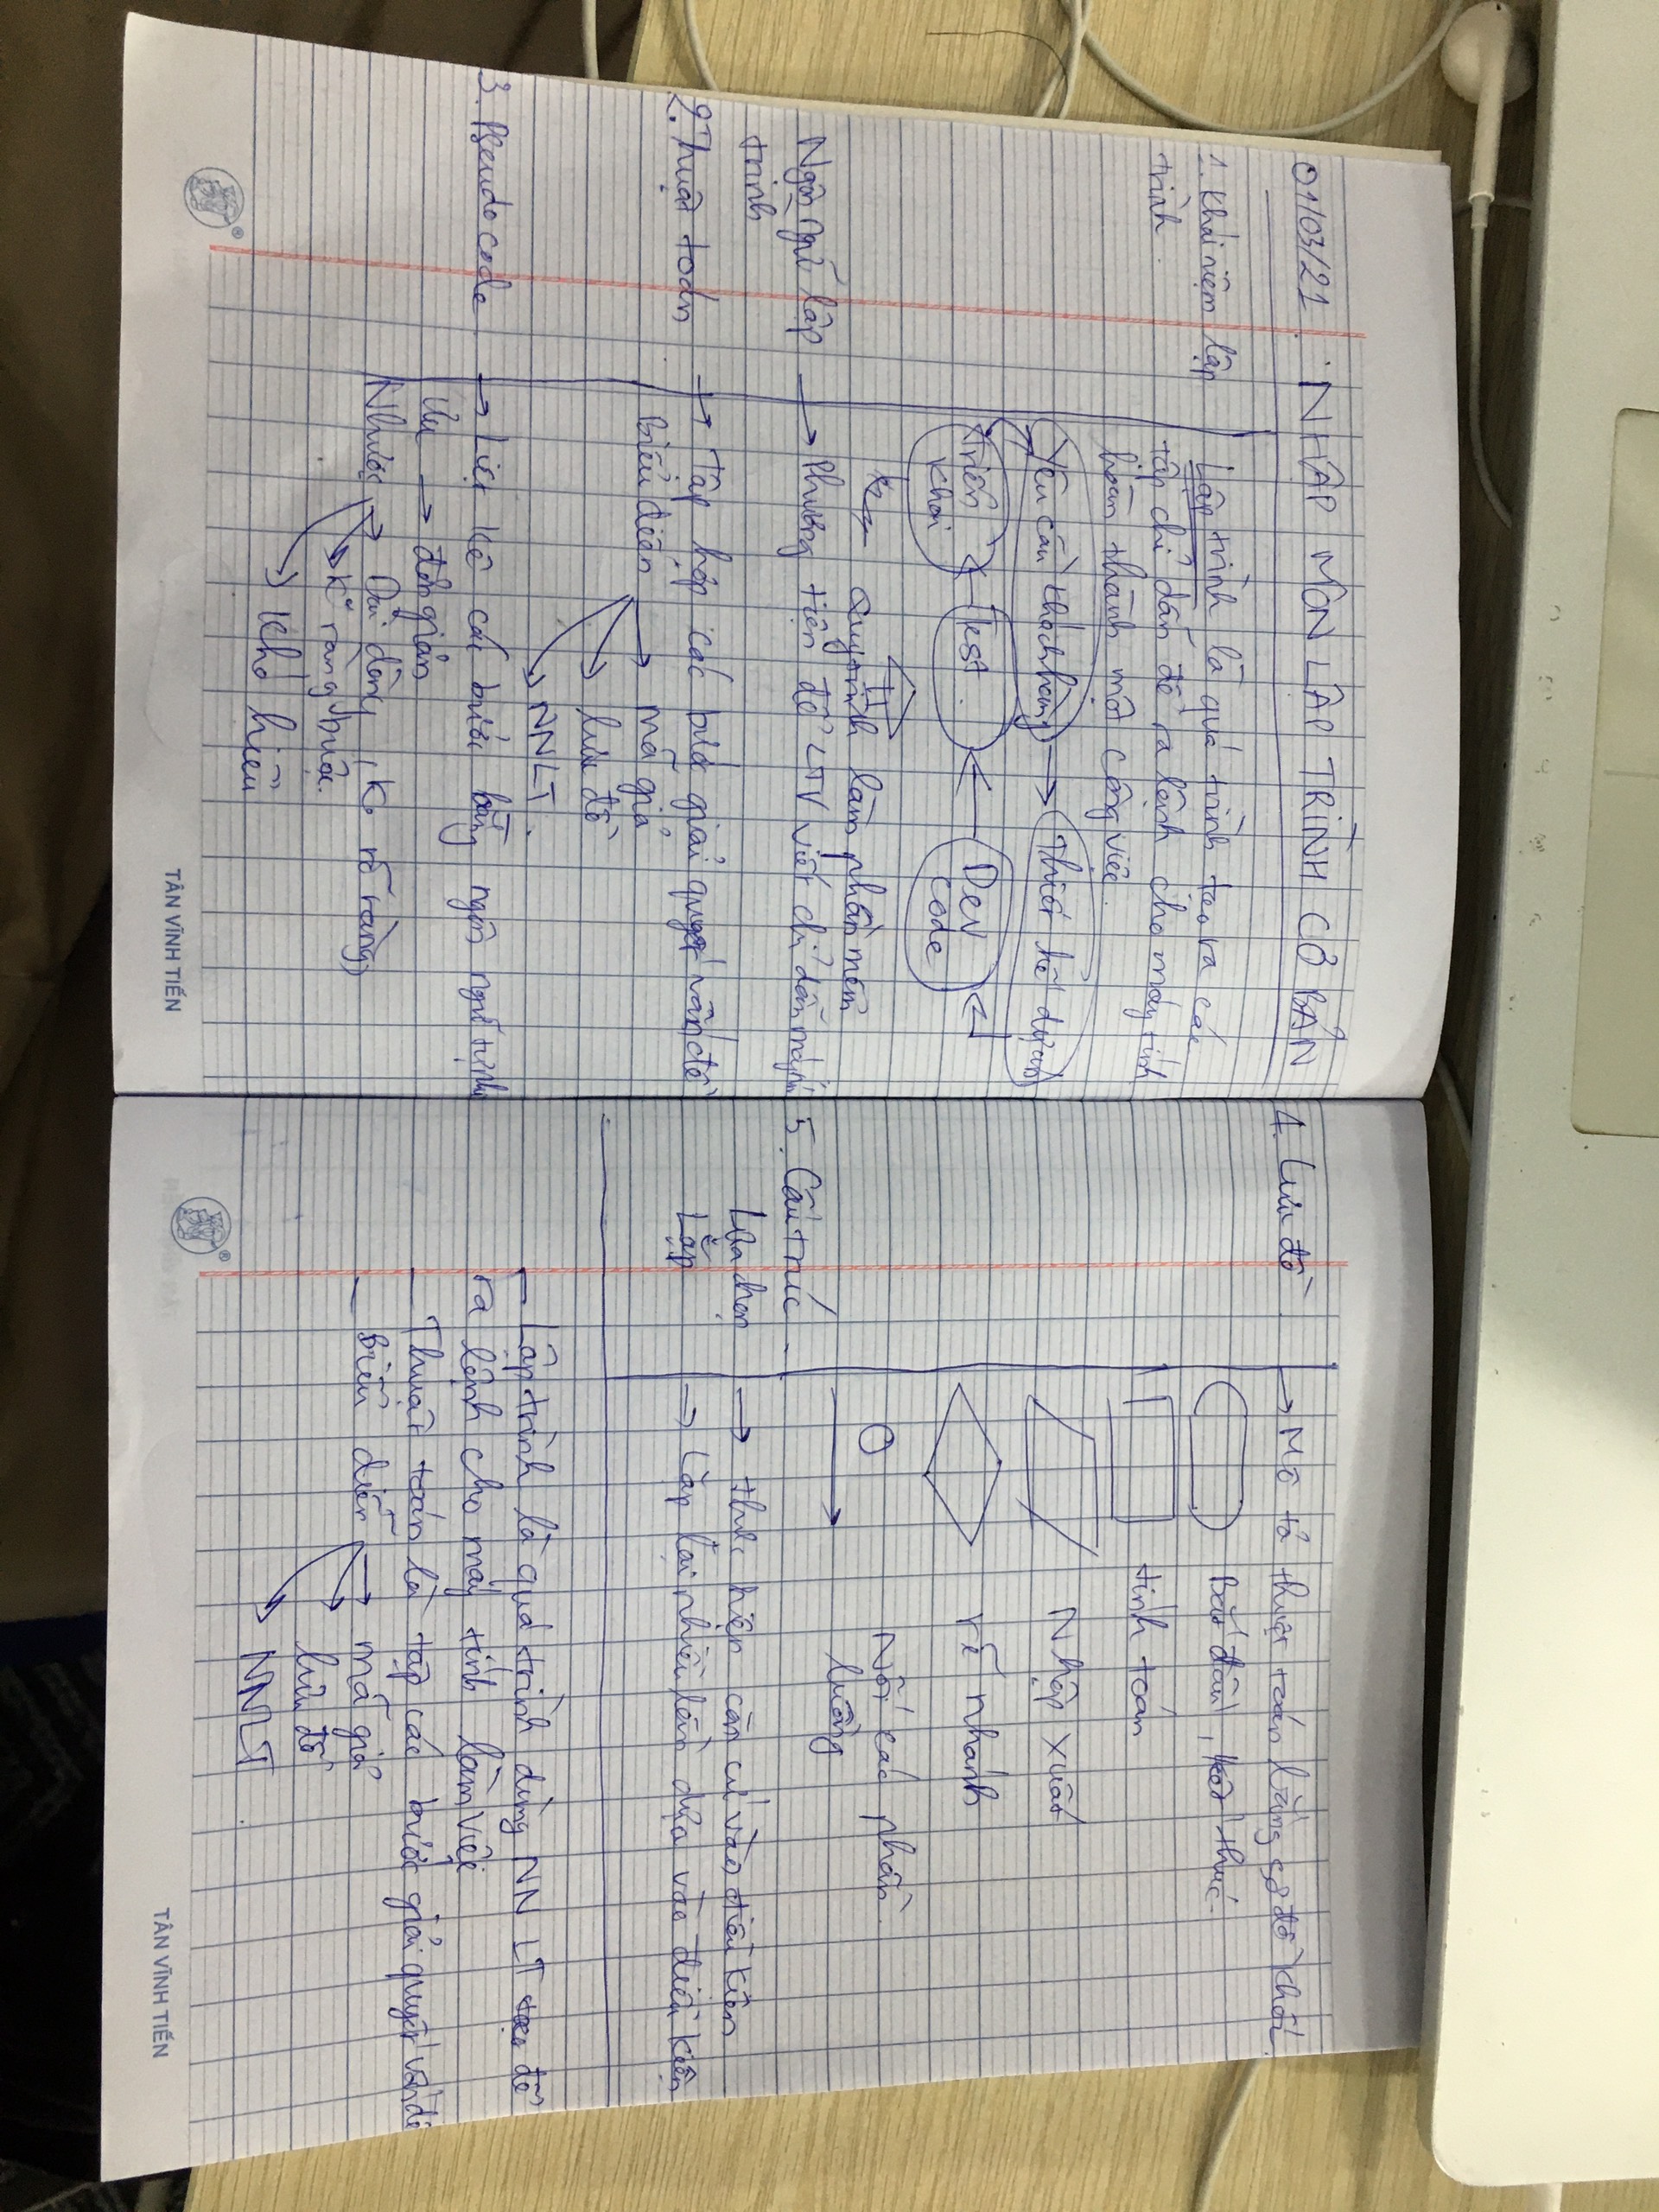 01/03/21. NHẬP MÔN LẬP TRÌNH CƠ BẢN
1. Khái niệm lập
trình.
Lập trình là quá trình tạo ra các
tập chỉ dẫn để ra lệnh cho máy tính
hoàn thành một công việc.
Yêu cầu khách hàng → Thiết kế
Triển khai ← Test. ← Dev code
Quy trình làm phần mềm
Ngôn ngữ lập
trình
→ Phương tiện để LTV viết chỉ dẫn máy
2. Thuật toán
→ Tập hợp các bước giải quyết vấn đề
biểu diễn → mã giả
→ lưu đồ
→ NNLT.
3. Pseudocode
→ Liệt kê các bước bằng ngôn ngữ
Ưu → đơn giản
Nhược → Dài dòng, Ko rõ ràng
→ Ko ràng buộc.
→ khó hiểu
TÂN VĨNH TIẾN
4. Lưu đồ
→ Mô tả thuật toán bằng sơ đồ khối.
Bắt đầu, kết thúc
tính toán
Nhập xuất
rẽ nhánh
Nối các phần.
luồng
5. Cấu trúc
Lựa chọn → thực hiện căn cứ vào điều kiện
Lặp → Lặp lại nhiều lần dựa vào điều kiện
- Lập trình là quá trình dùng NN LT để
ra lệnh cho máy tính làm việc
- Thuật toán là tập các bước giải quyết vấn đề
- Biểu diễn → mã giả
→ lưu đồ
→ NNLT
TÂN VĨNH TIẾN